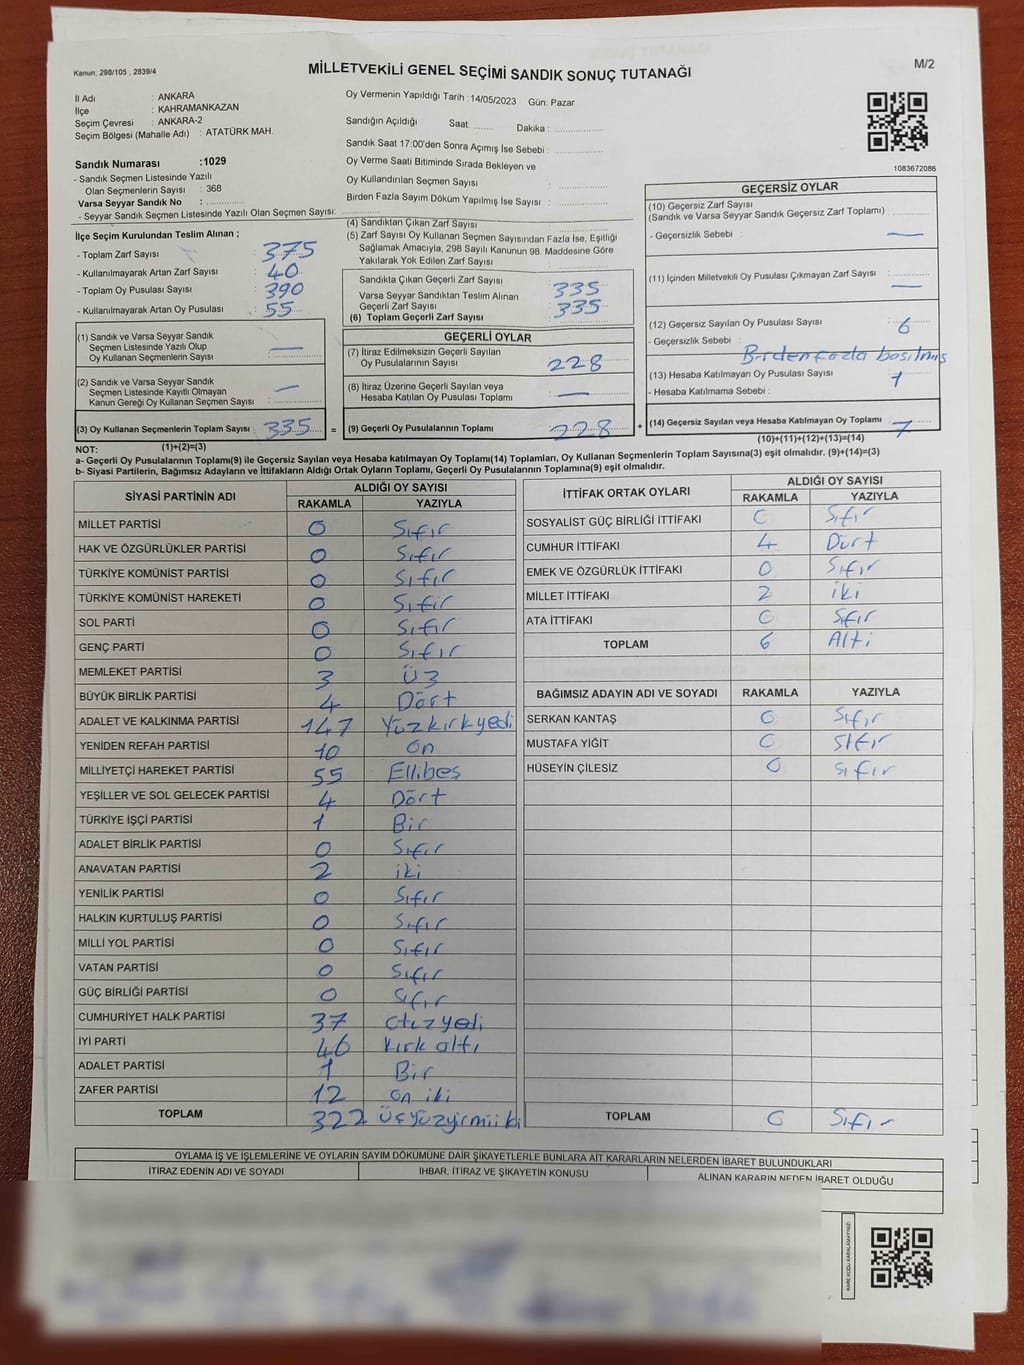 Kanun; 298/105 , 2839/4
MİLLETVEKİLİ GENEL SEÇİMİ SANDIK SONUÇ TUTANAĞI
M/2
İl Adı : ANKARA
İlçe : KAHRAMANKAZAN
Seçim Çevresi : ANKARA-2
Seçim Bölgesi (Mahalle Adı) : ATATÜRK MAH.
Sandık Numarası :1029
- Sandık Seçmen Listesinde Yazılı
Olan Seçmenlerin Sayısı : 368
Varsa Seyyar Sandık No : ....................
- Seyyar Sandık Seçmen Listesinde Yazılı Olan Seçmen Sayısı: ............
Oy Vermenin Yapıldığı Tarih :14/05/2023 Gün: Pazar
Sandığın Açıldığı Saat: ........ Dakika: ....................
Sandık Saat 17:00'den Sonra Açımış İse Sebebi : ....................
Oy Verme Saati Bitiminde Sırada Bekleyen ve
Oy Kullandırılan Seçmen Sayısı : ....................
Birden Fazla Sayım Döküm Yapılmış İse Sayısı : ....................
1083672086
İlçe Seçim Kurulundan Teslim Alınan ;
- Toplam Zarf Sayısı : 375
- Kullanılmayarak Artan Zarf Sayısı : 40
- Toplam Oy Pusulası Sayısı : 390
- Kullanılmayarak Artan Oy Pusulası : 55
(1) Sandık ve Varsa Seyyar Sandık
Seçmen Listesinde Yazılı Olup
Oy Kullanan Seçmenlerin Sayısı : —
(2) Sandık ve Varsa Seyyar Sandık
Seçmen Listesinde Kayıtlı Olmayan
Kanun Gereği Oy Kullanan Seçmen Sayısı : —
(3) Oy Kullanan Seçmenlerin Toplam Sayısı : 335
(1)+(2)=(3)
(4) Sandıktan Çıkan Zarf Sayısı : ....................
(5) Zarf Sayısı Oy Kullanan Seçmen Sayısından Fazla İse, Eşitliği
Sağlamak Amacıyla, 298 Sayılı Kanunun 98. Maddesine Göre
Yakılarak Yok Edilen Zarf Sayısı : ....................
Sandıkta Çıkan Geçerli Zarf Sayısı : 335
Varsa Seyyar Sandıktan Teslim Alınan
Geçerli Zarf Sayısı : 335
(6) Toplam Geçerli Zarf Sayısı :
GEÇERLİ OYLAR
(7) İtiraz Edilmeksizin Geçerli Sayılan
Oy Pusulalarının Sayısı : 228
(8) İtiraz Üzerine Geçerli Sayılan veya
Hesaba Katılan Oy Pusulası Toplamı : —
= (9) Geçerli Oy Pusulalarının Toplamı : 228 +
GEÇERSİZ OYLAR
(10) Geçersiz Zarf Sayısı
(Sandık ve Varsa Seyyar Sandık Geçersiz Zarf Toplamı) : ............
- Geçersizlik Sebebi : —
(11) İçinden Milletvekili Oy Pusulası Çıkmayan Zarf Sayısı : —
(12) Geçersiz Sayılan Oy Pusulası Sayısı : 6
- Geçersizlik Sebebi : Birdenfazla basılmış
(13) Hesaba Katılmayan Oy Pusulası Sayısı : 1
- Hesaba Katılmama Sebebi :
(14) Geçersiz Sayılan veya Hesaba Katılmayan Oy Toplamı : 7
(10)+(11)+(12)+(13)=(14)
NOT:
a- Geçerli Oy Pusulalarının Toplamı(9) ile Geçersiz Sayılan veya Hesaba katılmayan Oy Toplamı(14) Toplamları, Oy Kullanan Seçmenlerin Toplam Sayısına(3) eşit olmalıdır. (9)+(14)=(3)
b- Siyasi Partilerin, Bağımsız Adayların ve İttifakların Aldığı Ortak Oyların Toplamı, Geçerli Oy Pusulalarının Toplamına(9) eşit olmalıdır.
SİYASİ PARTİNİN ADI ALDIĞI OY SAYISI
RAKAMLA YAZIYLA
MİLLET PARTİSİ 0 Sıfır
HAK VE ÖZGÜRLÜKLER PARTİSİ 0 Sıfır
TÜRKİYE KOMÜNİST PARTİSİ 0 Sıfır
TÜRKİYE KOMÜNİST HAREKETİ 0 Sıfır
SOL PARTİ 0 Sıfır
GENÇ PARTİ 0 Sıfır
MEMLEKET PARTİSİ 3 Ü3
BÜYÜK BİRLİK PARTİSİ 4 Dört
ADALET VE KALKINMA PARTİSİ 147 Yüzkırkyedi
YENİDEN REFAH PARTİSİ 10 On
MİLLİYETÇİ HAREKET PARTİSİ 55 Ellibeş
YEŞİLLER VE SOL GELECEK PARTİSİ 4 Dört
TÜRKİYE İŞÇİ PARTİSİ 1 Bir
ADALET BİRLİK PARTİSİ 0 Sıfır
ANAVATAN PARTİSİ 2 iki
YENİLİK PARTİSİ 0 Sıfır
HALKIN KURTULUŞ PARTİSİ 0 Sıfır
MİLLİ YOL PARTİSİ 0 Sıfır
VATAN PARTİSİ 0 Sıfır
GÜÇ BİRLİĞİ PARTİSİ 0 Sıfır
CUMHURİYET HALK PARTİSİ 37 otuzyedi
İYİ PARTİ 46 kırkaltı
ADALET PARTİSİ 1 Bir
ZAFER PARTİSİ 12 on iki
TOPLAM 322 üçyüzyirmiiki
İTTİFAK ORTAK OYLARI ALDIĞI OY SAYISI
RAKAMLA YAZIYLA
SOSYALİST GÜÇ BİRLİĞİ İTTİFAKI 0 Sıfır
CUMHUR İTTİFAKI 4 Dört
EMEK VE ÖZGÜRLÜK İTTİFAKI 0 Sıfır
MİLLET İTTİFAKI 2 iki
ATA İTTİFAKI 0 Sıfır
TOPLAM 6 Altı
BAĞIMSIZ ADAYIN ADI VE SOYADI RAKAMLA YAZIYLA
SERKAN KANTAŞ 0 Sıfır
MUSTAFA YİĞİT 0 Sıfır
HÜSEYİN ÇİLESİZ 0 Sıfır
TOPLAM 0 Sıfır
OYLAMA İŞ VE İŞLEMLERİNE VE OYLARIN SAYIM DÖKÜMÜNE DAİR ŞİKAYETLERLE BUNLARA AİT KARARLARIN NELERDEN İBARET BULUNDUKLARI
İTİRAZ EDENİN ADI VE SOYADI İHBAR, İTİRAZ VE ŞİKAYETİN KONUSU ALINAN KARARIN NEDEN İBARET OLDUĞU
KARE KODU KARALAMAYINIZ!